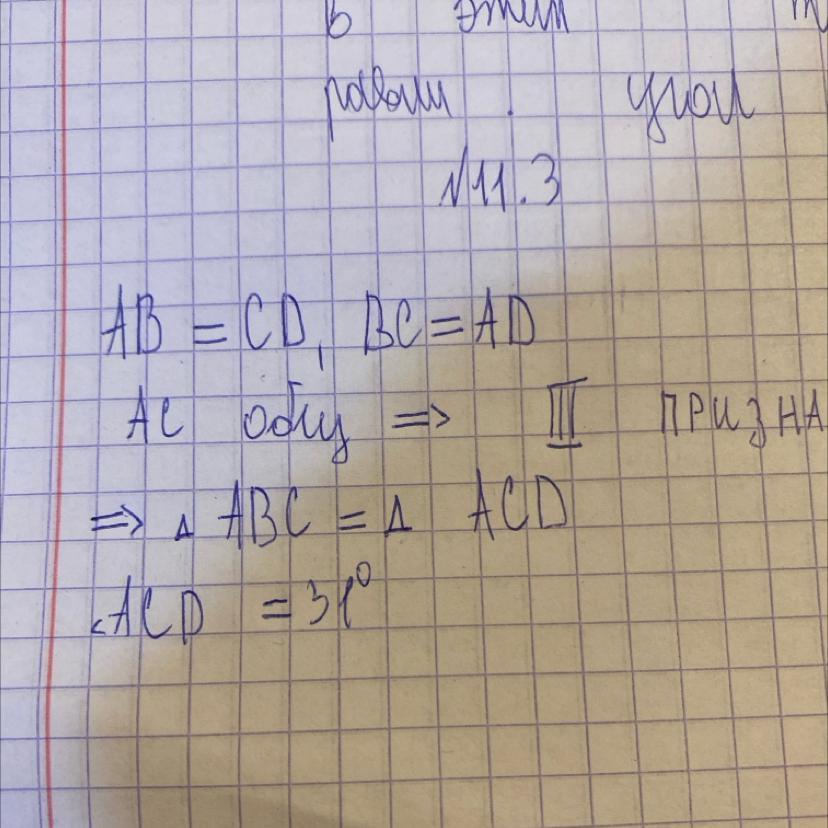 в этом
равны . угол
№11.3
AB = CD, BC = AD
AC общ => III ПРИЗНА
=> △ ABC = △ ACD
<ACD = 31°